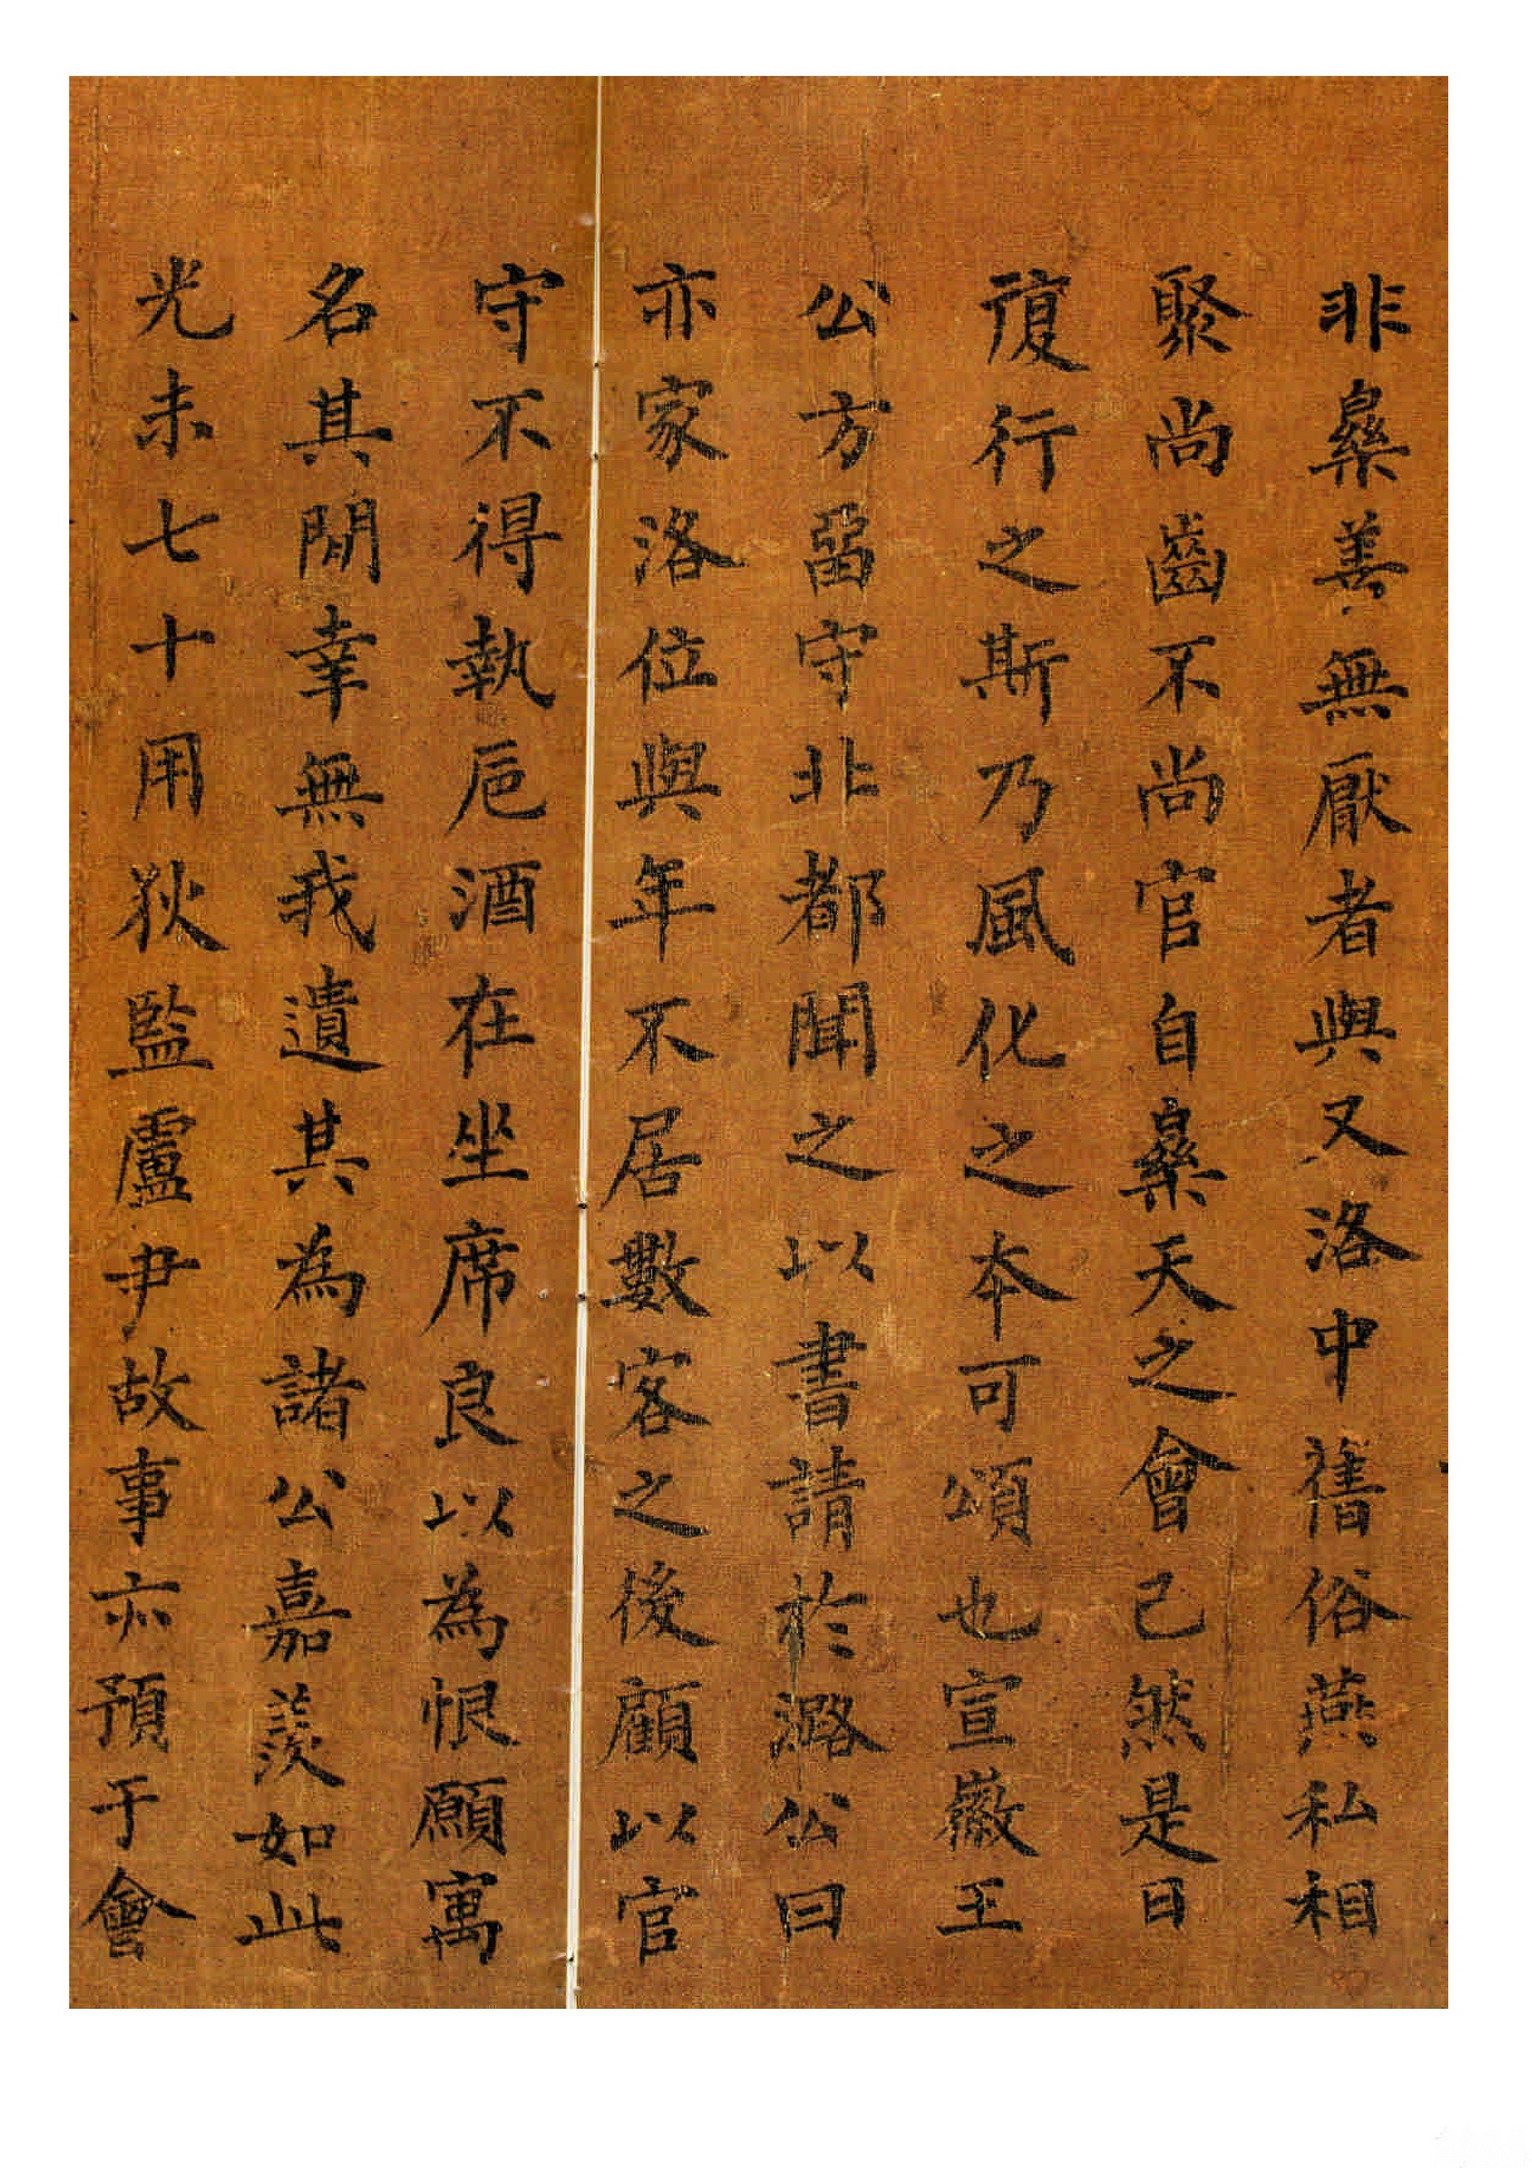 非樂善無厭者與又洛中舊俗燕私相
聚尚齒不尚官自樂天之會已然是日
復行之斯乃風化之本可頌也宣徽王
公方留守北都聞之以書請於潞公曰
亦家洛位與年不居數客之後顧以官
守不得執卮酒在坐席良以為恨願寓
名其間幸無我遺其為諸公嘉羨如此
光未七十用狄監盧尹故事亦預于會